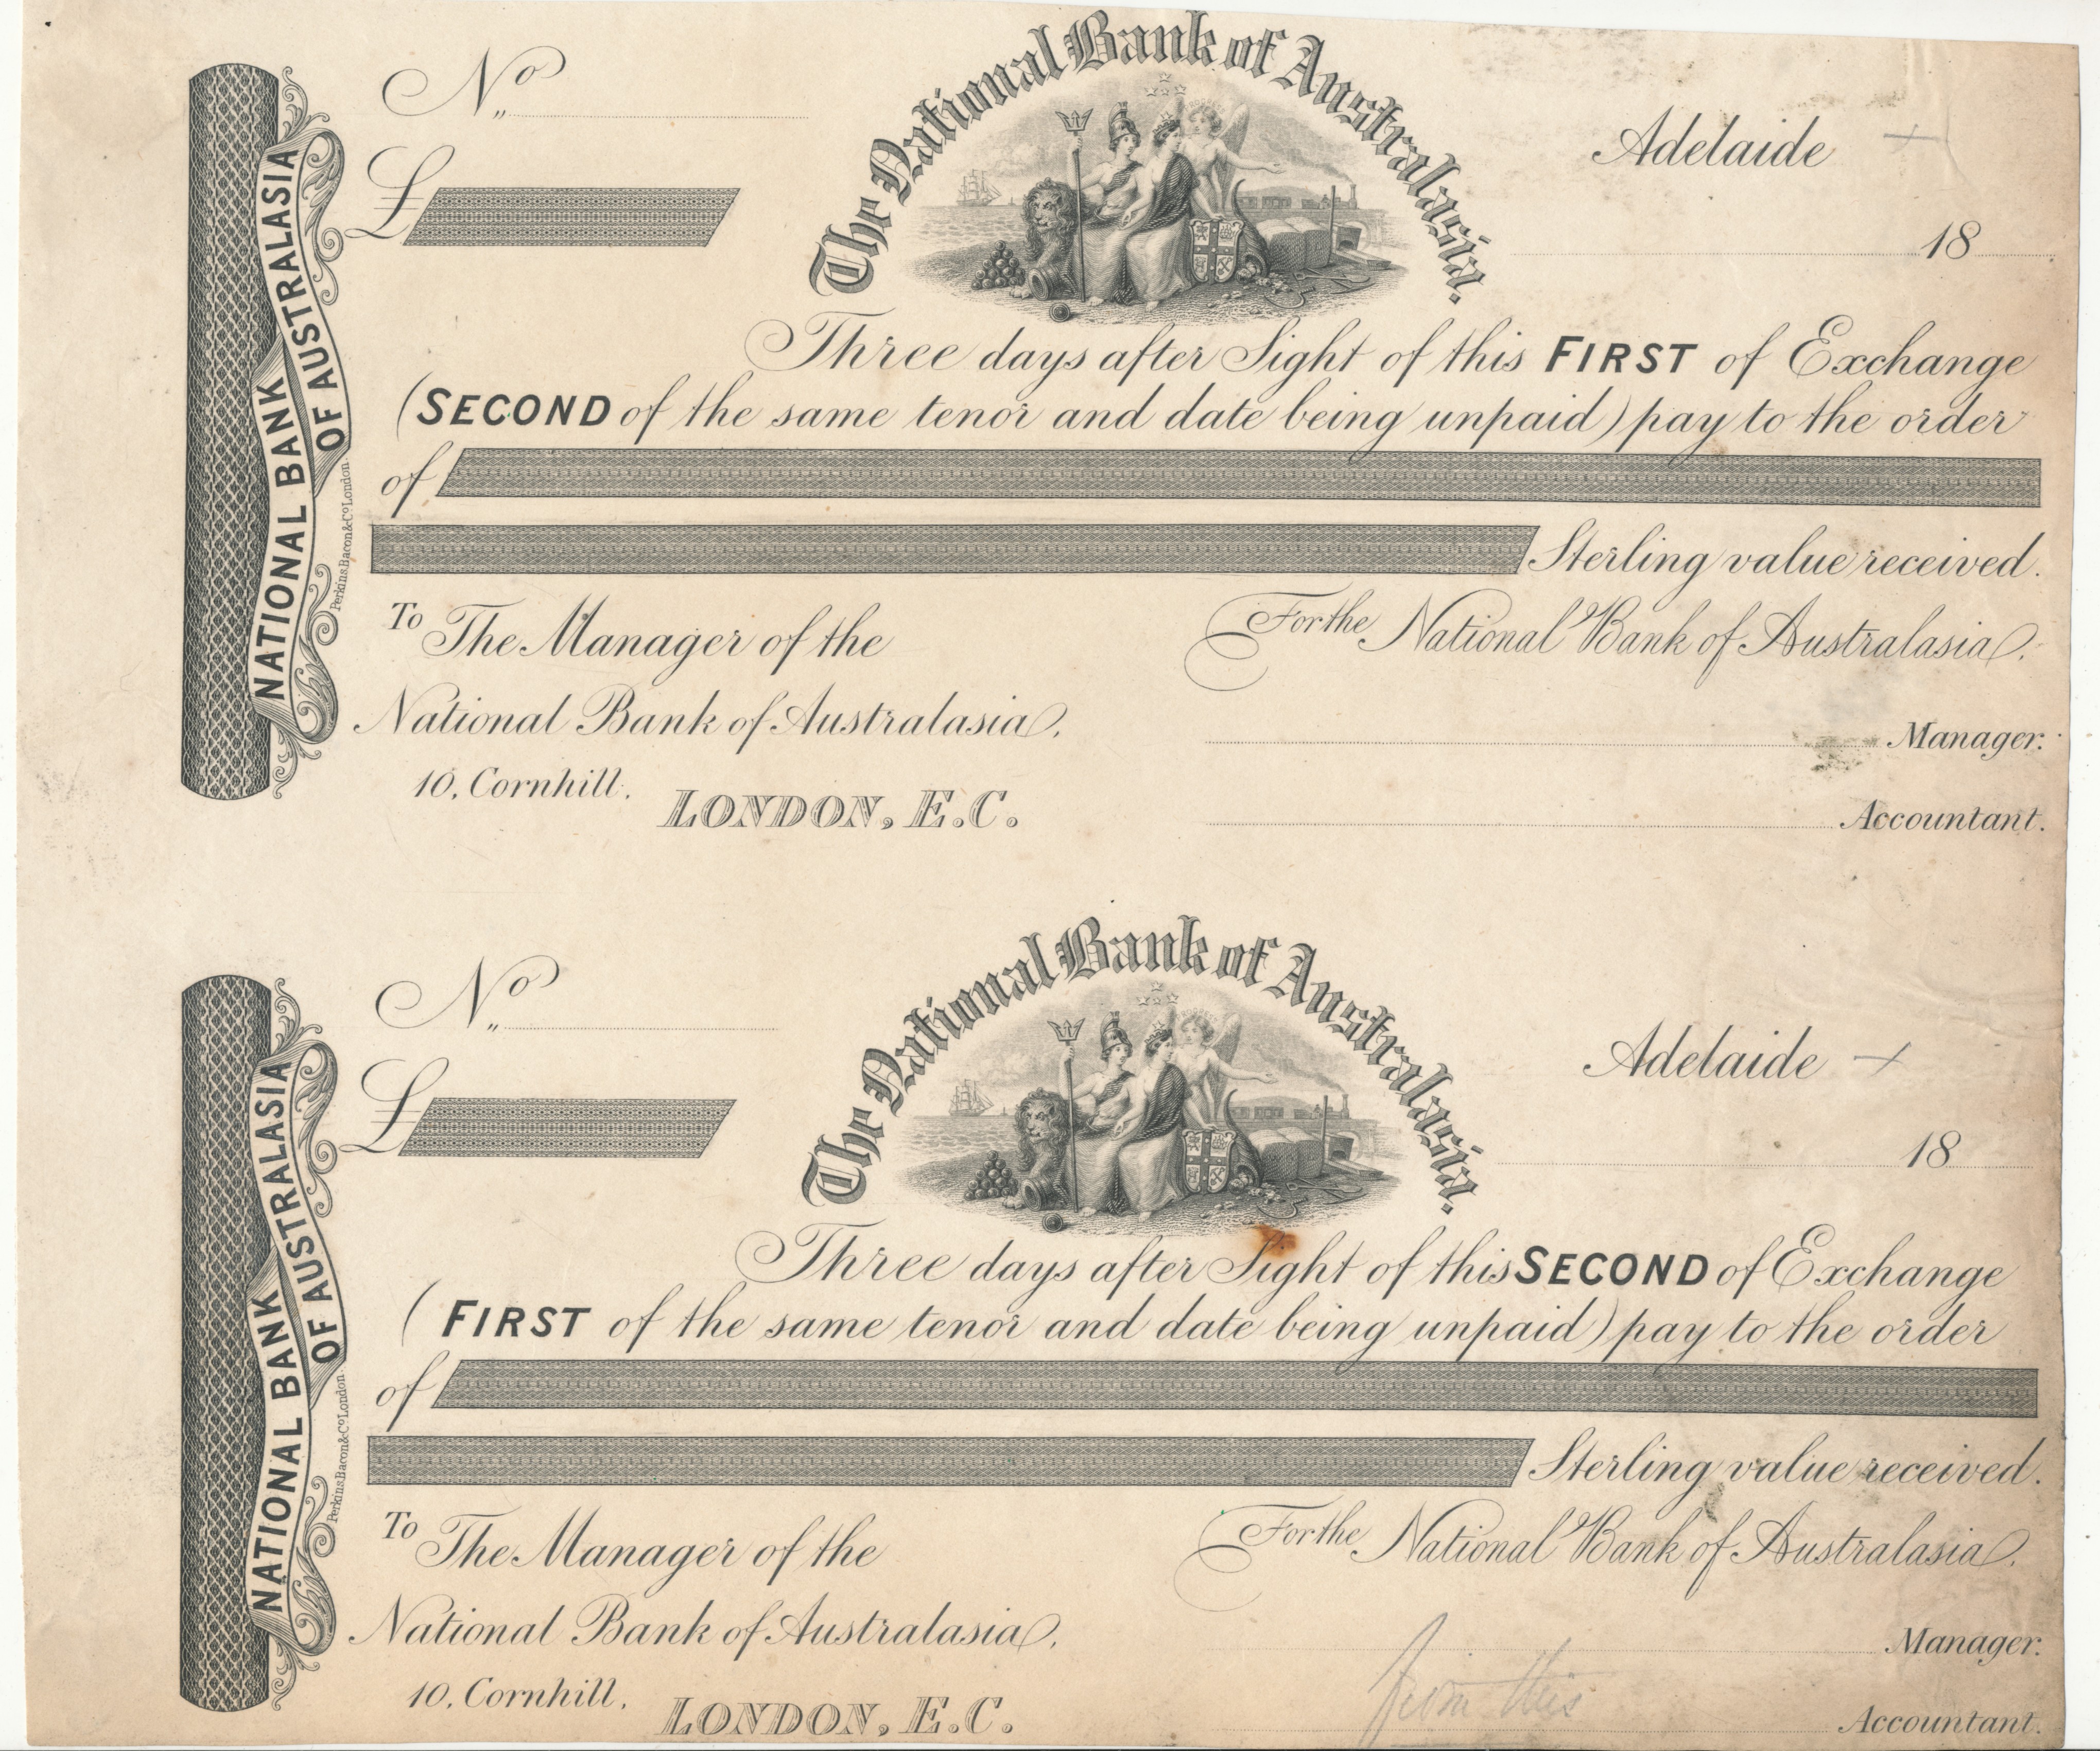 No
The National Bank of Australasia.
Adelaide
£
18
NATIONAL BANK
OF AUSTRALASIA
Perkins, Bacon & Co London.
Three days after Sight of this FIRST of Exchange
(SECOND of the same tenor and date being unpaid) pay to the order
of
Sterling value received.
To The Manager of the
National Bank of Australasia,
10, Cornhill.
LONDON, E.C.
For the National Bank of Australasia.
Manager.
Accountant.
No
The National Bank of Australasia.
Adelaide
£
18
NATIONAL BANK
OF AUSTRALASIA
Perkins, Bacon & Co London.
Three days after Sight of this SECOND of Exchange
(FIRST of the same tenor and date being unpaid) pay to the order
of
Sterling value received.
To The Manager of the
National Bank of Australasia,
10, Cornhill.
LONDON, E.C.
For the National Bank of Australasia.
Manager.
from this
Accountant.